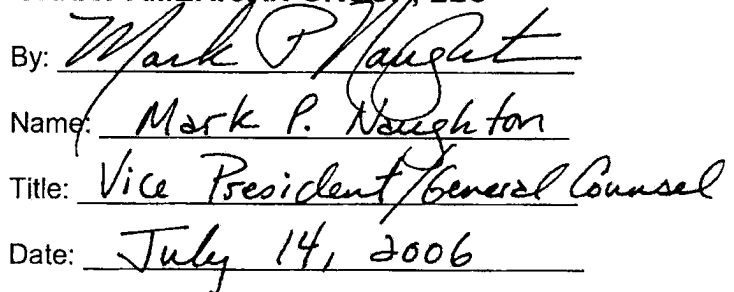 LLC
By: Mark P Naughton
Name: Mark P. Naughton
Title: Vice President/General Counsel
Date: July 14, 2006